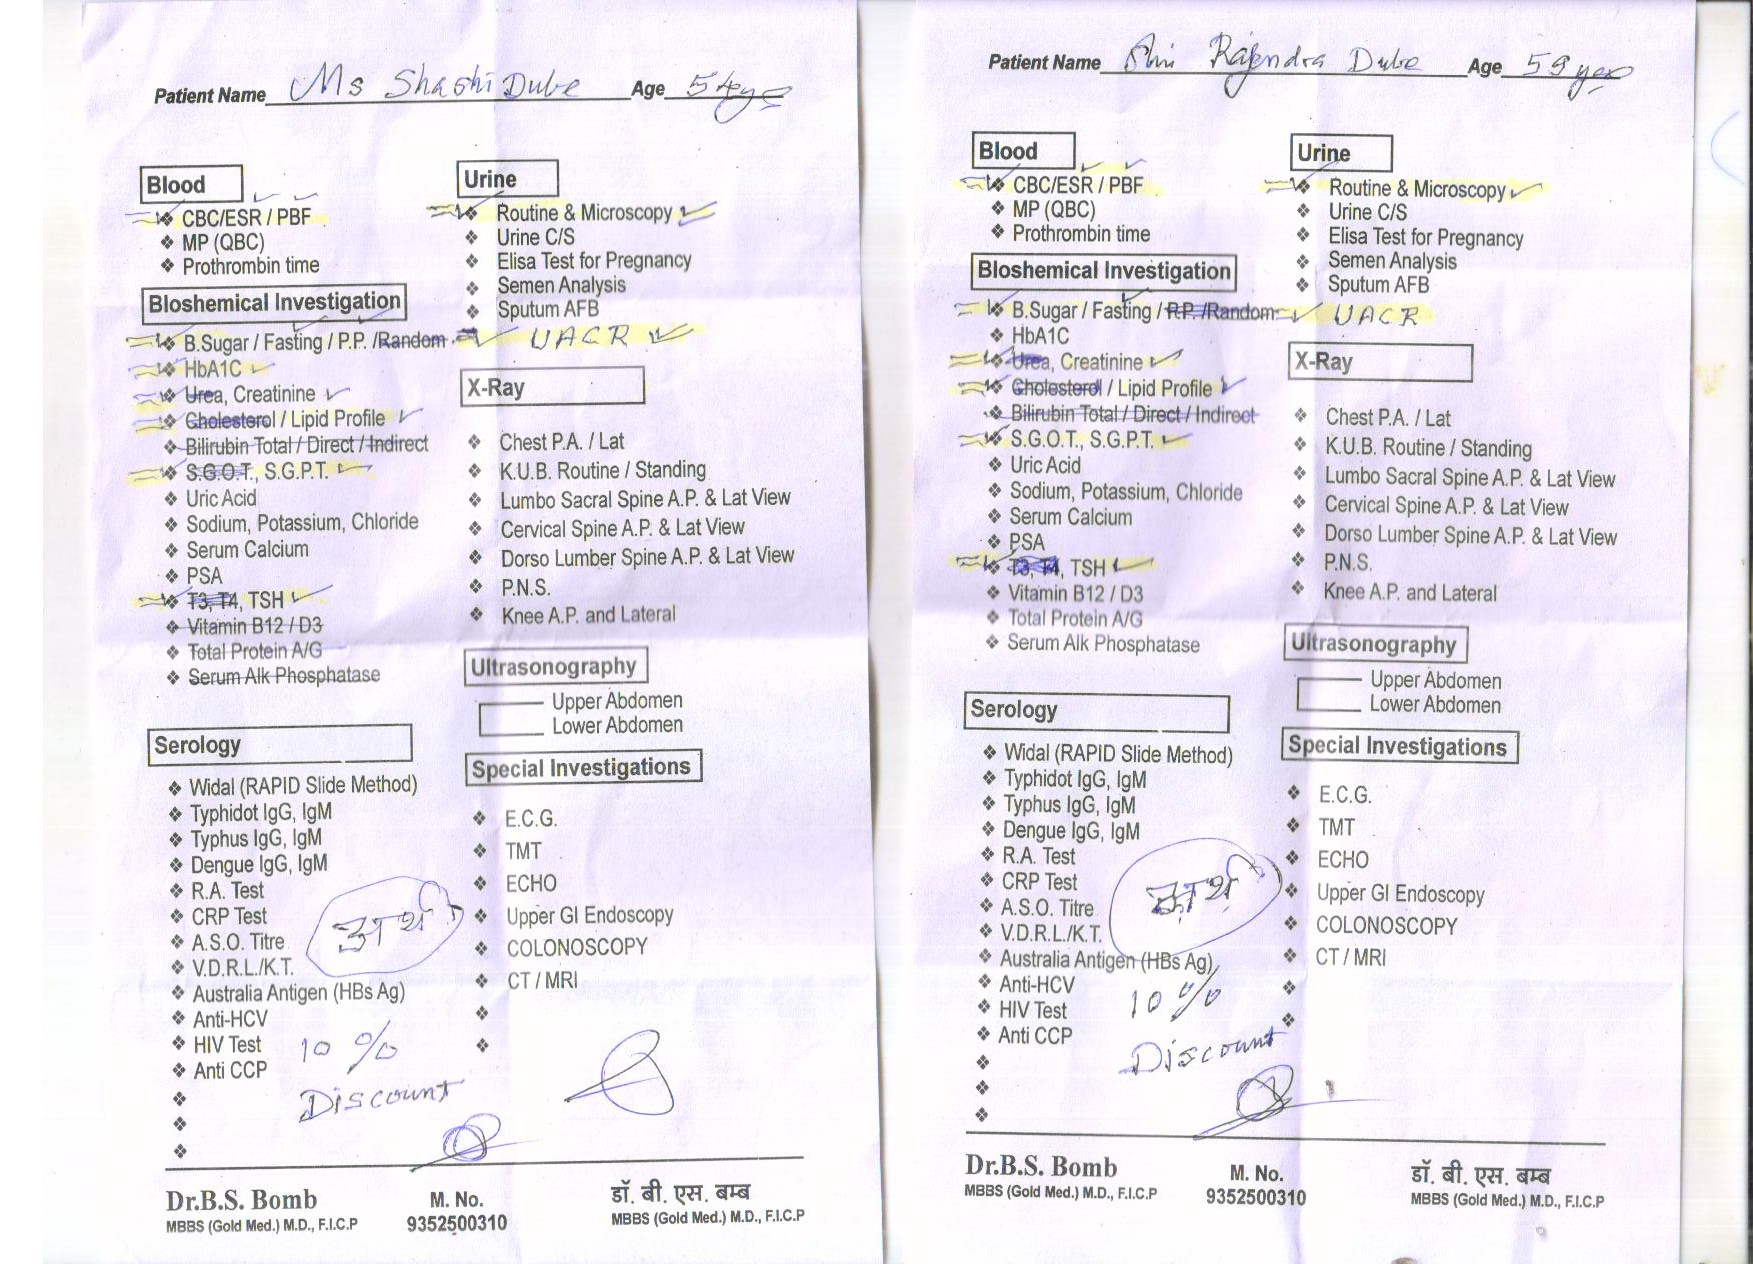 Patient Name Ms Shashi Dube Age 54 yrs
Blood
❖ CBC/ESR / PBF
❖ MP (QBC)
❖ Prothrombin time
Bloshemical Investigation
❖ B.Sugar / Fasting / P.P. /Random
❖ HbA1C
❖ Urea, Creatinine
❖ Cholesterol / Lipid Profile
❖ Bilirubin Total / Direct / Indirect
❖ S.G.O.T., S.G.P.T.
❖ Uric Acid
❖ Sodium, Potassium, Chloride
❖ Serum Calcium
❖ PSA
❖ T3, T4, TSH
❖ Vitamin B12 / D3
❖ Total Protein A/G
❖ Serum Alk Phosphatase
Serology
❖ Widal (RAPID Slide Method)
❖ Typhidot IgG, IgM
❖ Typhus IgG, IgM
❖ Dengue IgG, IgM
❖ R.A. Test
❖ CRP Test
❖ A.S.O. Titre
❖ V.D.R.L./K.T.
❖ Australia Antigen (HBs Ag)
❖ Anti-HCV
❖ HIV Test
❖ Anti CCP
10 %
Discount
Urine
❖ Routine & Microscopy
❖ Urine C/S
❖ Elisa Test for Pregnancy
❖ Semen Analysis
❖ Sputum AFB
UACR
X-Ray
❖ Chest P.A. / Lat
❖ K.U.B. Routine / Standing
❖ Lumbo Sacral Spine A.P. & Lat View
❖ Cervical Spine A.P. & Lat View
❖ Dorso Lumber Spine A.P. & Lat View
❖ P.N.S.
❖ Knee A.P. and Lateral
Ultrasonography
Upper Abdomen
Lower Abdomen
Special Investigations
❖ E.C.G.
❖ TMT
❖ ECHO
❖ Upper GI Endoscopy
❖ COLONOSCOPY
❖ CT / MRI
Dr.B.S. Bomb M. No. डॉ. बी. एस. बम्ब
MBBS (Gold Med.) M.D., F.I.C.P 9352500310 MBBS (Gold Med.) M.D., F.I.C.P
Patient Name Shri Rajendra Dube Age 59 yrs
Blood
❖ CBC/ESR / PBF
❖ MP (QBC)
❖ Prothrombin time
Bloshemical Investigation
❖ B.Sugar / Fasting / P.P. /Random
❖ HbA1C
❖ Urea, Creatinine
❖ Cholesterol / Lipid Profile
❖ Bilirubin Total / Direct / Indirect
❖ S.G.O.T., S.G.P.T.
❖ Uric Acid
❖ Sodium, Potassium, Chloride
❖ Serum Calcium
❖ PSA
❖ T3, T4, TSH
❖ Vitamin B12 / D3
❖ Total Protein A/G
❖ Serum Alk Phosphatase
Serology
❖ Widal (RAPID Slide Method)
❖ Typhidot IgG, IgM
❖ Typhus IgG, IgM
❖ Dengue IgG, IgM
❖ R.A. Test
❖ CRP Test
❖ A.S.O. Titre
❖ V.D.R.L./K.T.
❖ Australia Antigen (HBs Ag)
❖ Anti-HCV
❖ HIV Test
❖ Anti CCP
10 %
Discount
Urine
❖ Routine & Microscopy
❖ Urine C/S
❖ Elisa Test for Pregnancy
❖ Semen Analysis
❖ Sputum AFB
UACR
X-Ray
❖ Chest P.A. / Lat
❖ K.U.B. Routine / Standing
❖ Lumbo Sacral Spine A.P. & Lat View
❖ Cervical Spine A.P. & Lat View
❖ Dorso Lumber Spine A.P. & Lat View
❖ P.N.S.
❖ Knee A.P. and Lateral
Ultrasonography
Upper Abdomen
Lower Abdomen
Special Investigations
❖ E.C.G.
❖ TMT
❖ ECHO
❖ Upper GI Endoscopy
❖ COLONOSCOPY
❖ CT / MRI
Dr.B.S. Bomb M. No. डॉ. बी. एस. बम्ब
MBBS (Gold Med.) M.D., F.I.C.P 9352500310 MBBS (Gold Med.) M.D., F.I.C.P